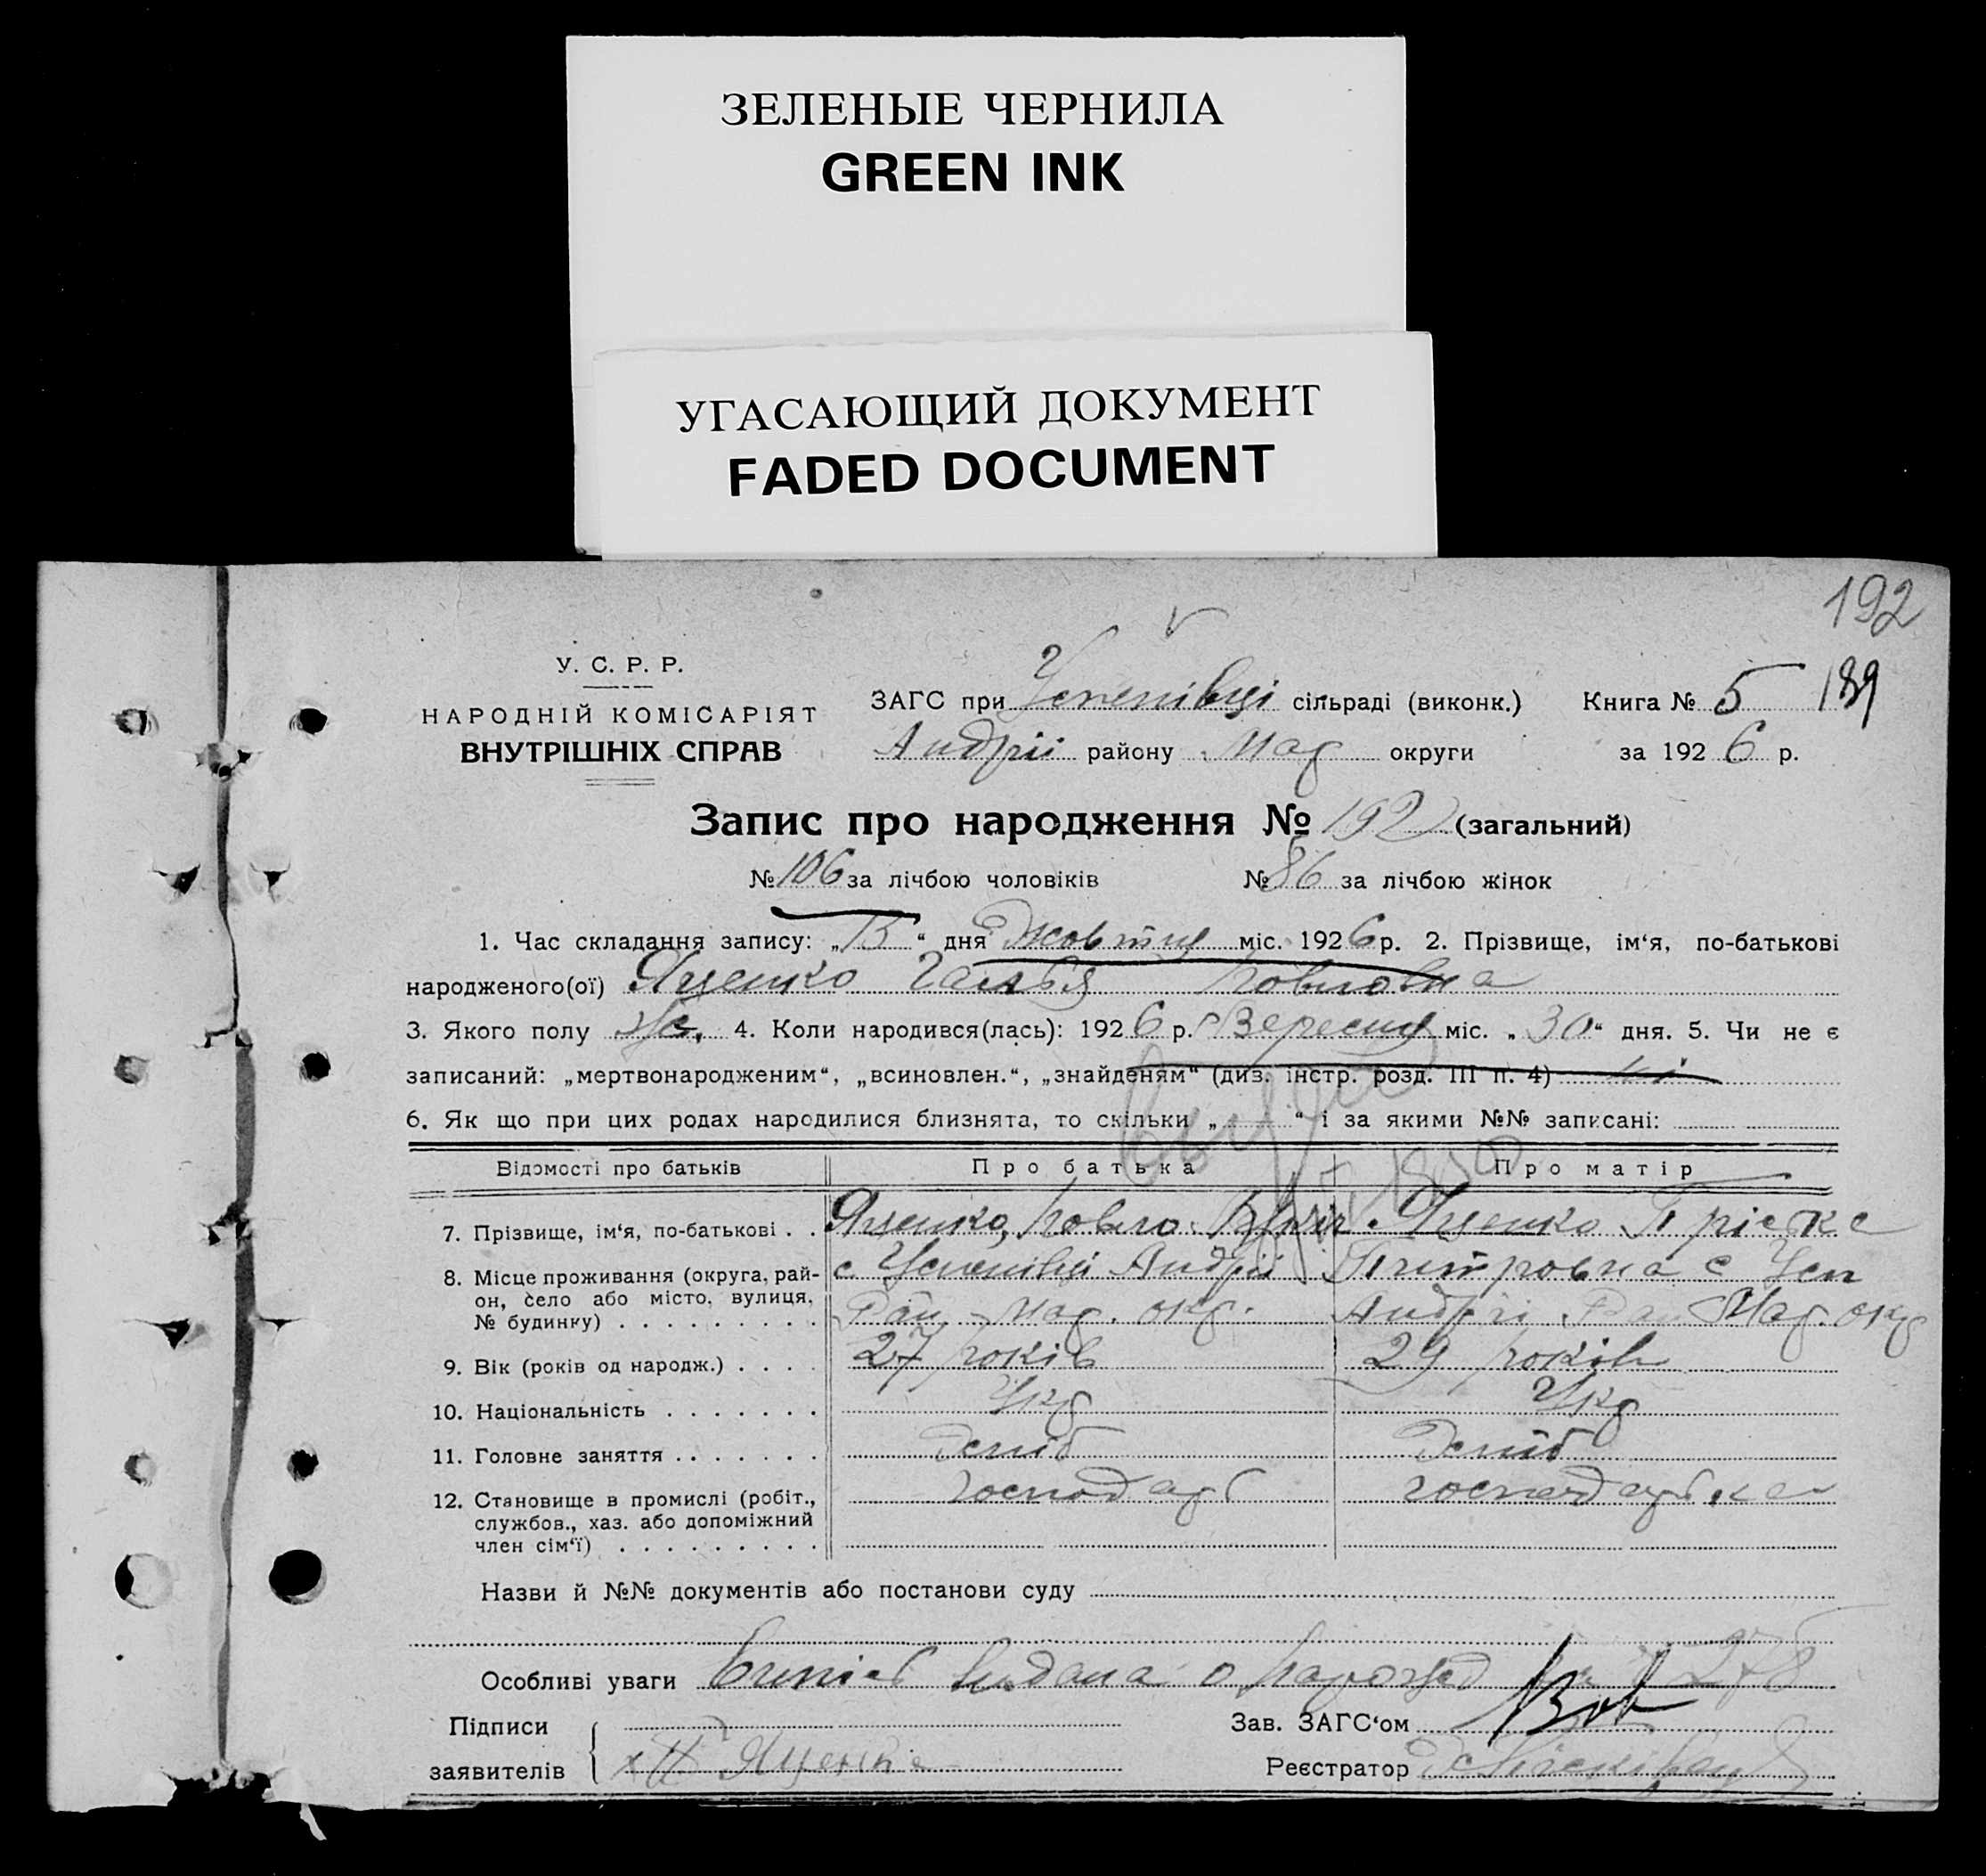 ЗЕЛЕНЫЕ ЧЕРНИЛА
GREEN INK
УГАСАЮЩИЙ ДОКУМЕНТ
FADED DOCUMENT
192
189
У. С. Р. Р.
НАРОДНІЙ КОМІСАРІЯТ
ВНУТРІШНІХ СПРАВ
ЗАГС при Успенівці сільраді (виконк.) Книга № 5
Андрії району Мар округи за 1926 р.
Запис про народження № 192 (загальний)
№ 106 за лічбою чоловіків № 86 за лічбою жінок
1. Час складання запису: „13“ дня Жовтня міс. 1926 р. 2. Прізвище, ім‘я, по-батькові
народженого(ої) Яценко Галья Повловна
3. Якого полу Жс. 4. Коли народився(лась): 1926 р. Вересня міс. „30“ дня. 5. Чи не є
записаний: „мертвонародженим“, „всиновлен.“, „знайденям“ (див. інстр. розд. III п. 4) ні
6. Як що при цих родах народилися близнята, то скільки „ “ і за якими №№ записані:
Відомості про батьків Про батька Про матір
7. Прізвище, ім‘я, по-батькові . . Яценко, Повло Яценко
8. Місце проживання (округа, рай-он, село або місто, вулиця, № будинку) с Успенівці Андрії Рай Мар. окр. Питровна с Усп Андрії Рай Мар. окр
9. Вік (років од народж.) . . . . 27 років 29 років
10. Національність . . . . . . . Укр Укр
11. Головне заняття . . . . . . . Хліб Хліб
12. Становище в промислі (робіт., службов., хаз. або допоміжний член сім‘ї) . . . . . . . . . господарь господарька
Назви й №№ документів або постанови суду
Особливі уваги видана о 278
Підписи
заявителів Яценко
Зав. ЗАГС‘ом
Реєстратор